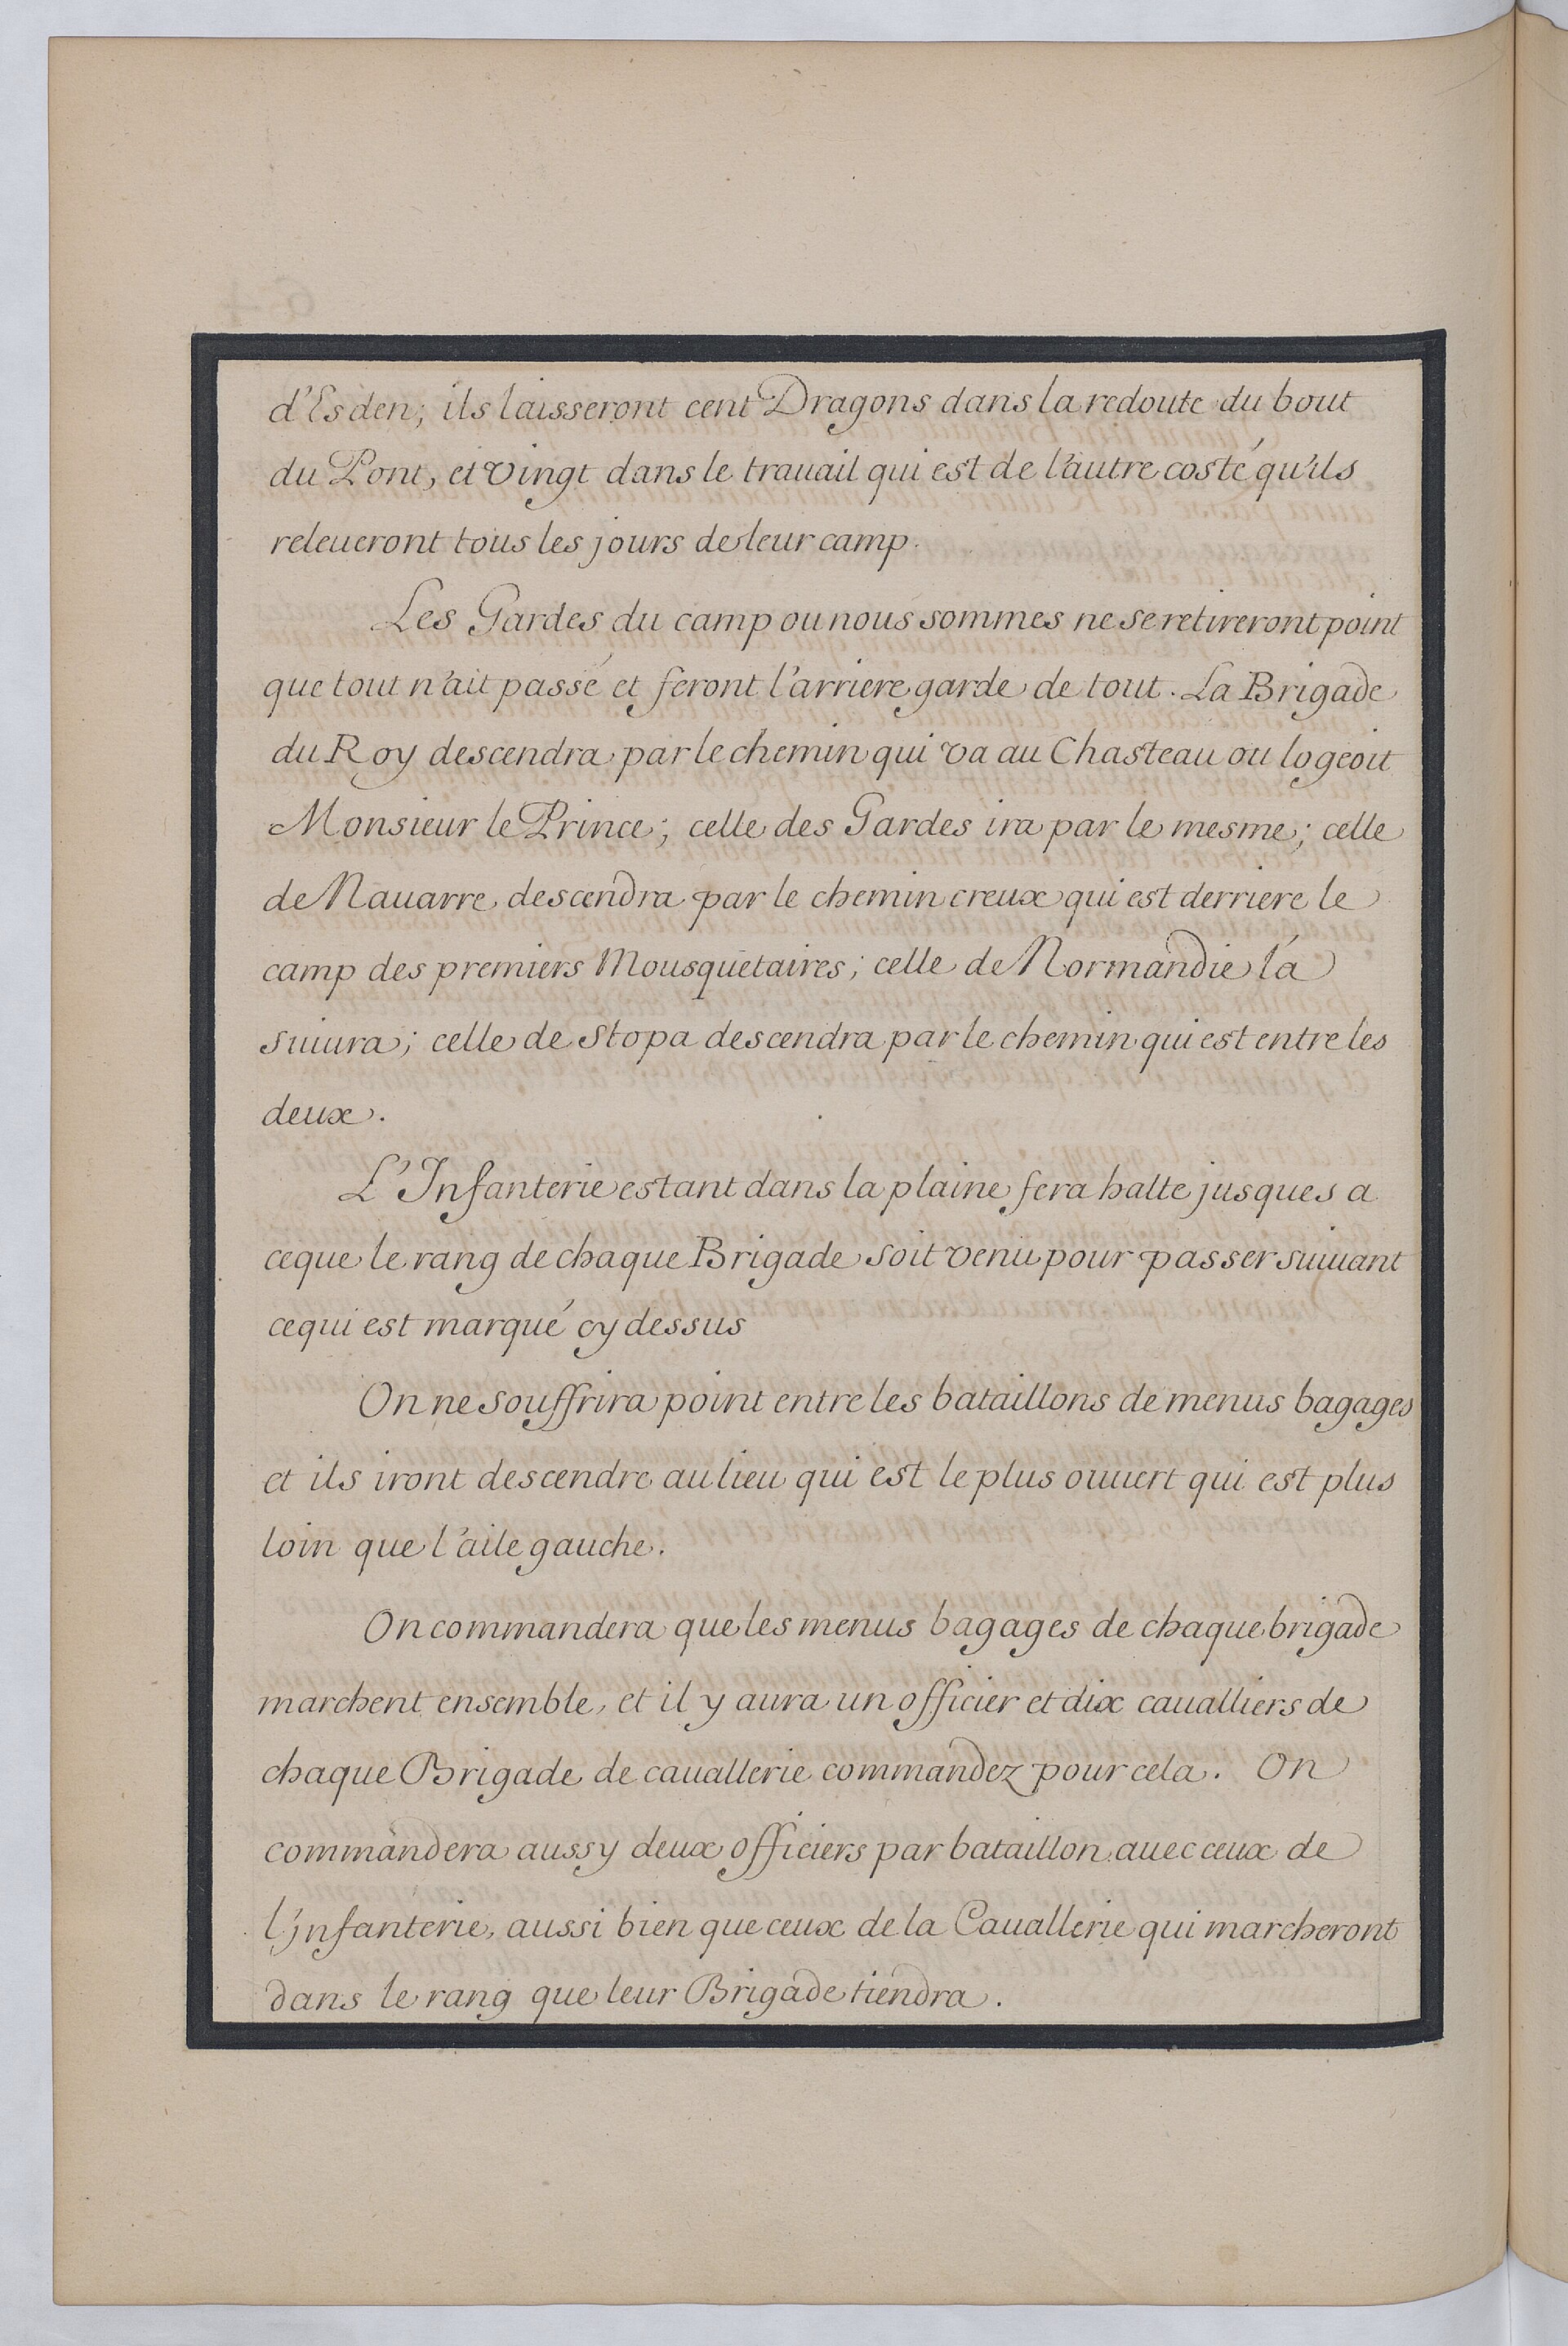 d'Esden; ils laisseront cent Dragons dans la redoute du bout
du Pont, et vingt dans le trauail qui est de l'autre costé qu'ils
releueront tous les jours de leur camp.
Les Gardes du camp ou nous sommes ne se retireront point
que tout n'ait passé et feront l'arriere garde de tout. La Brigade
du Roy descendra par le chemin qui va au Chasteau ou logeoit
Monsieur le Prince; celle des Gardes ira par le mesme; celle
de Nauarre descendra par le chemin creux qui est derriere le
camp des premiers Mousquetaires; celle de Normandie la
suiura; celle de Stopa descendra par le chemin qui est entre les
deux.
L'Infanterie estant dans la plaine fera halte jusques a
ce que le rang de chaque Brigade soit venu pour passer suiuant
ce qui est marqué cy dessus
On ne souffrira point entre les bataillons de menus bagages
et ils iront descendre au lieu qui est le plus ouuert qui est plus
loin que l'aile gauche.
On commandera que les menus bagages de chaque brigade
marchent ensemble, et il y aura un officier et dix caualliers de
chaque Brigade de cauallerie commandez pour cela. On
commandera aussy deux officiers par bataillon auec ceux de
l'jnfanterie, aussi bien que ceux de la Cauallerie qui marcheront
dans le rang que leur Brigade tiendra.